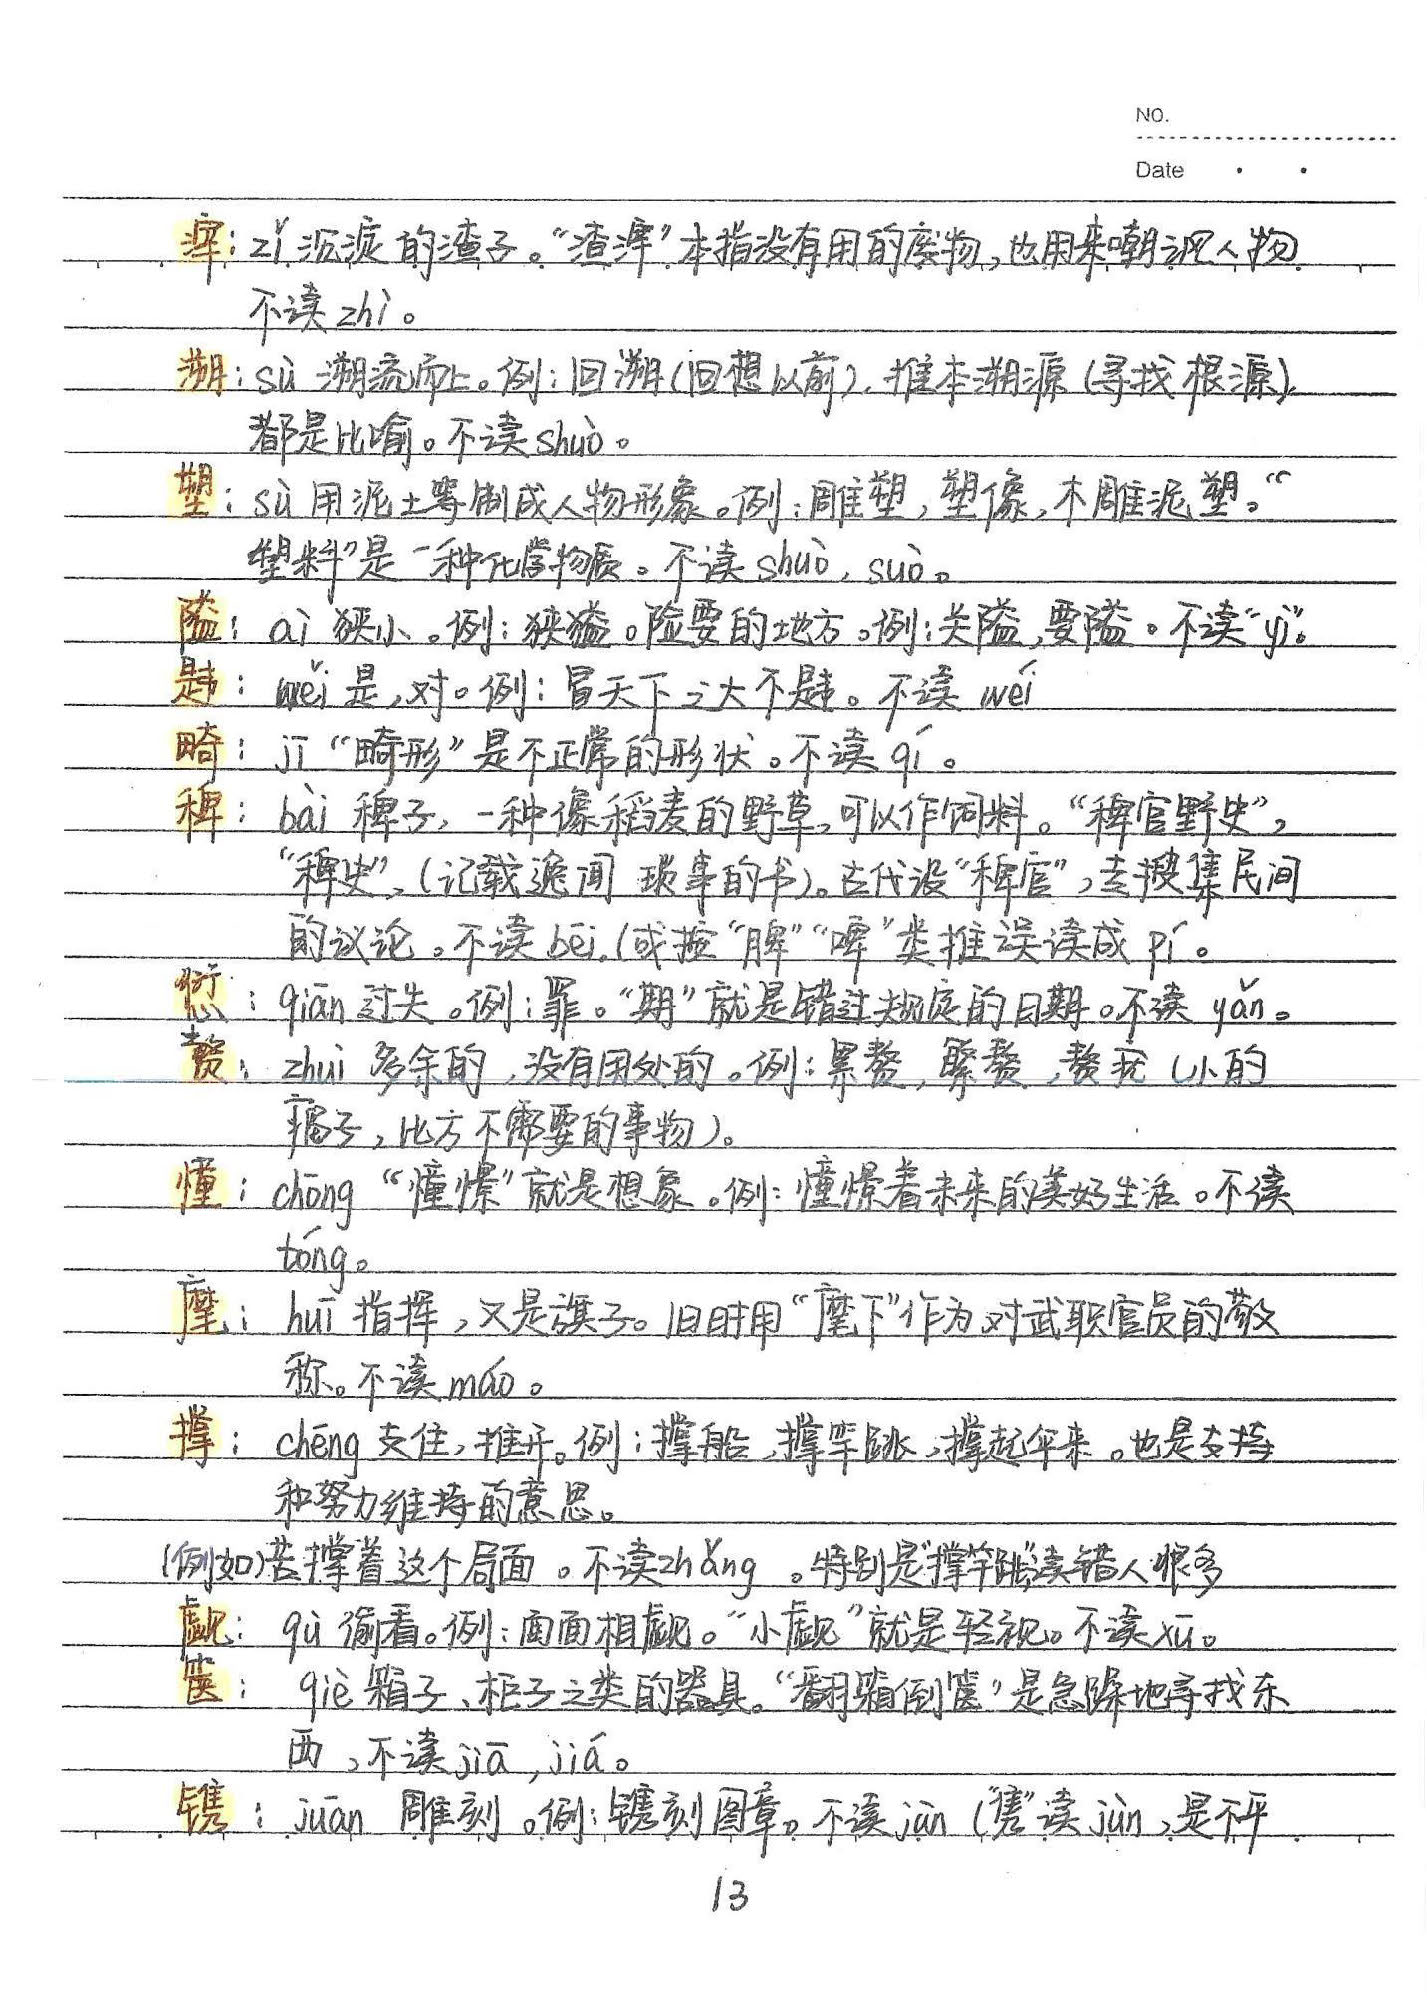 NO.
Date
滓：zǐ 沉淀的渣子。“渣滓”本指没有用的废物，也用来嘲讽人物
不读zhì。
溯：sù 溯流而上。例：回溯（回想以前），推本溯源（寻找根源），
都是比喻。不读shuò。
塑：sù 用泥土等制成人物形象。例：雕塑，塑像，木雕泥塑。“
塑料”是一种化学物质。不读shuò，suò。
隘：ài 狭小。例：狭隘。险要的地方。例：关隘，要隘。不读“yì”。
韪：wěi 是，对。例：冒天下之大不韪。不读 wéi
畸：jī “畸形”是不正常的形状。不读 qí。
稗：bài 稗子，一种像稻麦的野草，可以作饲料。“稗官野史”，
“稗史”，（记载逸闻 琐事的书）。古代设“稗官”，去搜集民间
的议论。不读bēi.（或按“脾”“啤”类推误读成 pí。
愆：qiān 过失。例：罪。“期”就是错过规定的日期。不读 yǎn。
赘：zhuì 多余的，没有用处的。例：累赘，赘，赘疣（小的
瘤子，比方不需要的事物）。
憧：chōng “憧憬”就是想象。例：憧憬着未来的美好生活。不读
tóng。
麾：huī 指挥，又是旗子。旧时用“麾下”作为对武职官员的敬
称。不读máo。
撑：chēng 支住，推开。例：撑船，撑竿跳，撑起伞来。也是支持
和努力维持的意思。
（例如）苦撑着这个局面。不读zhǎng。特别是“撑竿跳”读错人很多
觑：qù 偷看。例：面面相觑。“小觑”就是轻视。不读xū。
箧：qiè 箱子、柜子之类的器具。“翻箱倒箧”是急躁地寻找东
西，不读jiā，jiá。
镌：juān 雕刻。例：镌刻图章。不读jùn（“隽”读jùn，是不平
13